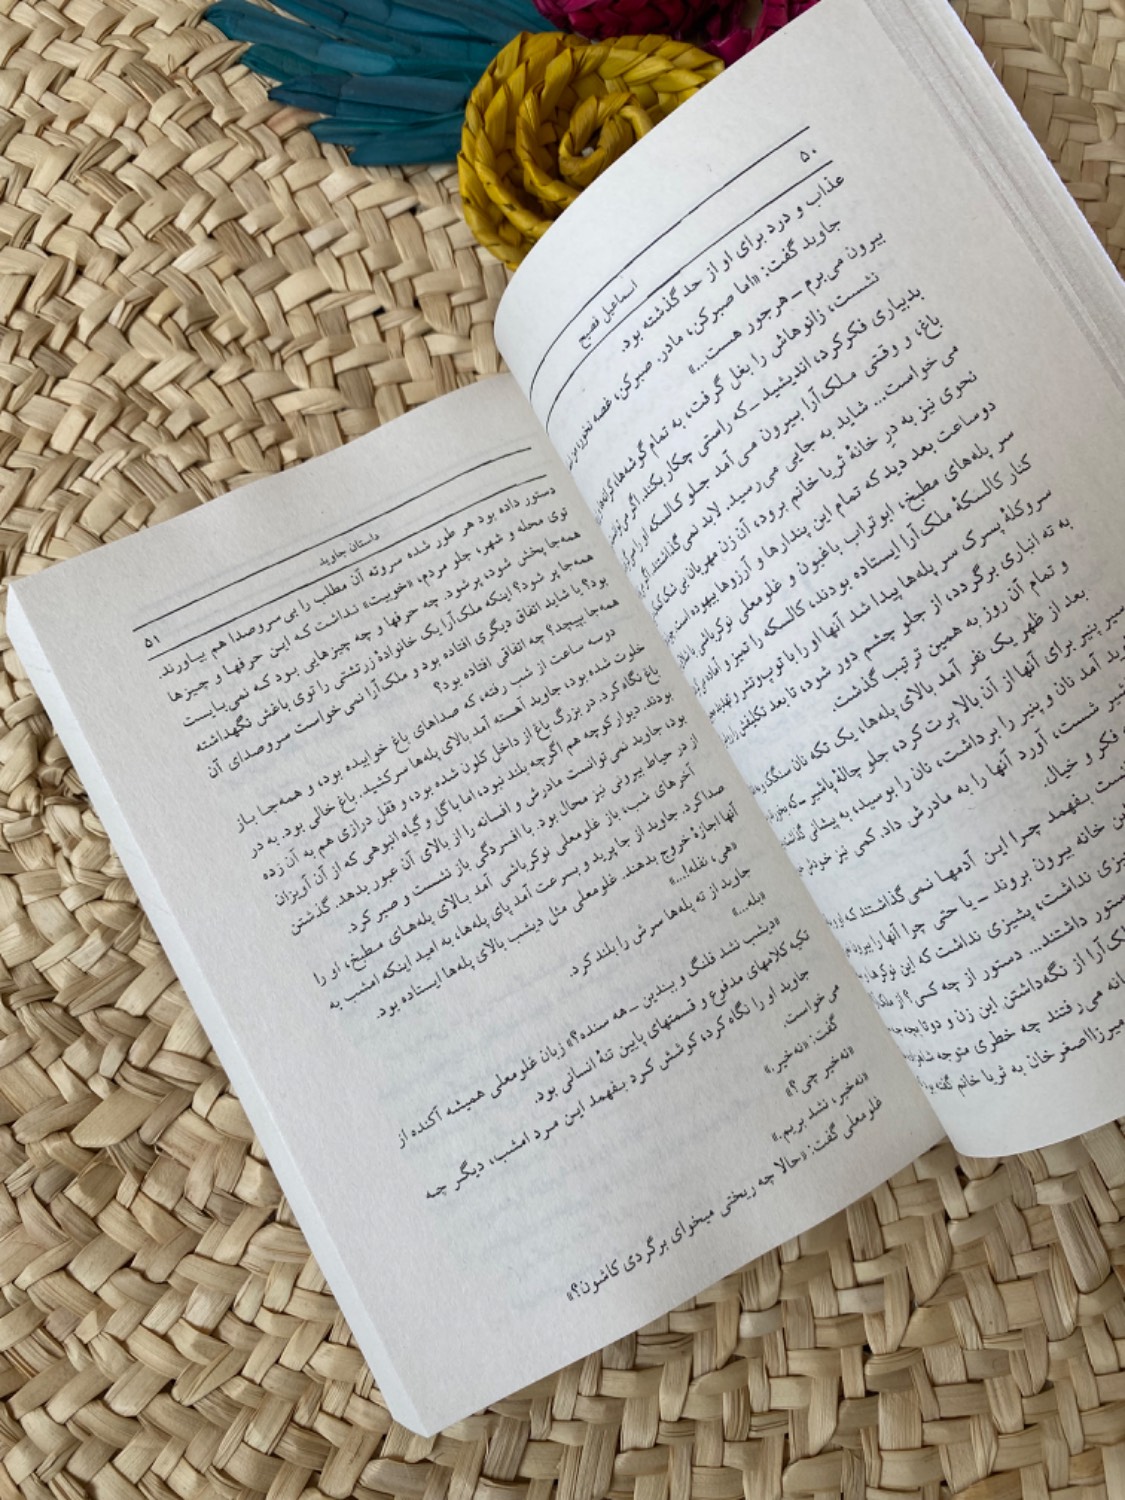 ۵۰
اسماعیل فصیح
عذاب و درد برای او از حد گذشته بود.
جاوید گفت: «اما صبر کن، مادر. صبر کن، غصه نخور،
بیرون می‌برم ــ هرجور هست...»
نشست، زانوهاش را بغل گرفت، به تمام گوشه‌ها،
بدبیاری فکر کرد، اندیشید ــ که راستی چکار بکند. اگر
باغ، و وقتی ملک‌آرا بیرون می‌آمد جلو کالسکه او را
می‌خواست... شاید به جایی می‌رسید. لابد نمی‌گذاشتند. اگر
نحوی نیز به در خانهٔ ثریا خانم برود، آن زن مهربان بی‌شک
دو ساعت بعد دید که تمام این پندارها و آرزوها بیهوده است.
سر پله‌های مطبخ، ابوتراب باغبون و غلومعلی نوکرباشی
کنار کالسکهٔ ملک‌آرا ایستاده بودند، کالسکه را تمیز و آماده
سروکلهٔ پسرک سر پله‌ها پیدا شد آنها او را با توپ و تشر و
به ته انباری برگردد، از جلو چشم دور شود، تا بعد تکلیفش را
و تمام آن روز به همین ترتیب گذشت.
بعد از ظهر یک نفر آمد بالای پله‌ها، یک تکه نان سنگک
سیر پنیر برای آنها از آن بالا پرت کرد، جلو چالهٔ پاشیر ــ که
آمد نان و پنیر را برداشت، نان را بوسید، به پیشانی
شست، آورد آنها را به مادرش داد. کمی نیز خودش
فکر و خیال.
بفهمد چرا این آدمها نمی‌گذاشتند که
این خانه بیرون بروند ــ یا حتی چرا آنها را
نداشت، پشیزی نداشت که این نوکرها
داشتند... دستور از چه کسی؟ از
از نگه‌داشتن این زن و دو تا بچه
می‌رفتند چه خطری متوجه
میرزا اصغر خان به ثریا خانم گفته
داستان جاوید
۵۱
دستور داده بود هر طور شده سروته آن مطلب را بی‌سروصدا هم بیاورند.
توی محله و شهر، جلو مردم، «خوبیت» نداشت که این حرفها و چیزها
همه‌جا پخش شود، پر شود. چه حرفها و چه چیزهایی بود که نمی‌بایست
همه‌جا پر شود؟ اینکه ملک‌آرا یک خانوادهٔ زرتشتی را توی باغش نگهداشته
بود؟ یا شاید اتفاق دیگری افتاده بود و ملک‌آرا نمی‌خواست سروصدای آن
همه‌جا بپیچد؟ چه اتفاقی افتاده بود؟
دوسه ساعت از شب رفته، که صداهای باغ خوابیده بود، و همه‌جا باز
خلوت شده بود، جاوید آهسته آمد بالای پله‌ها سرکشید. باغ خالی بود. به در
باغ نگاه کرد. در بزرگ باغ از داخل کلون شده بود، و قفل درازی هم به آن زده
بودند. دیوار کوچه هم اگرچه بلند نبود، اما با گل و گیاه انبوهی که از آن آویزان
بود، جاوید نمی‌توانست مادرش و افسانه را از بالای آن عبور بدهد. گذشتن
از در حیاط بیرونی نیز محال بود. با افسردگی باز نشست و صبر کرد.
آخرهای شب، باز غلومعلی نوکرباشی آمد بالای پله‌های مطبخ، او را
صدا کرد. جاوید از جا پرید و بسرعت آمد پای پله‌ها، به امید اینکه امشب به
آنها اجازهٔ خروج بدهند. غلومعلی مثل دیشب بالای پله‌ها ایستاده بود.
«هی، نفله!...»
جاوید از ته پله‌ها سرش را بلند کرد.
«بله...»
«دیشب نشد فلنگ و ببندین ــ هه سنده؟» زبان غلومعلی همیشه آکنده از
تکیه کلامهای مدفوع و قسمتهای پایین تنهٔ انسانی بود.
جاوید او را نگاه کرد، کوشش کرد بفهمد این مرد امشب، دیگر چه
می‌خواست.
گفت: «نه‌خیر.»
«نه‌خیر چی؟»
«نه‌خیر، نشد بریم.»
غلومعلی گفت: «حالا چه ریختی میخوای برگردی کاشون؟»